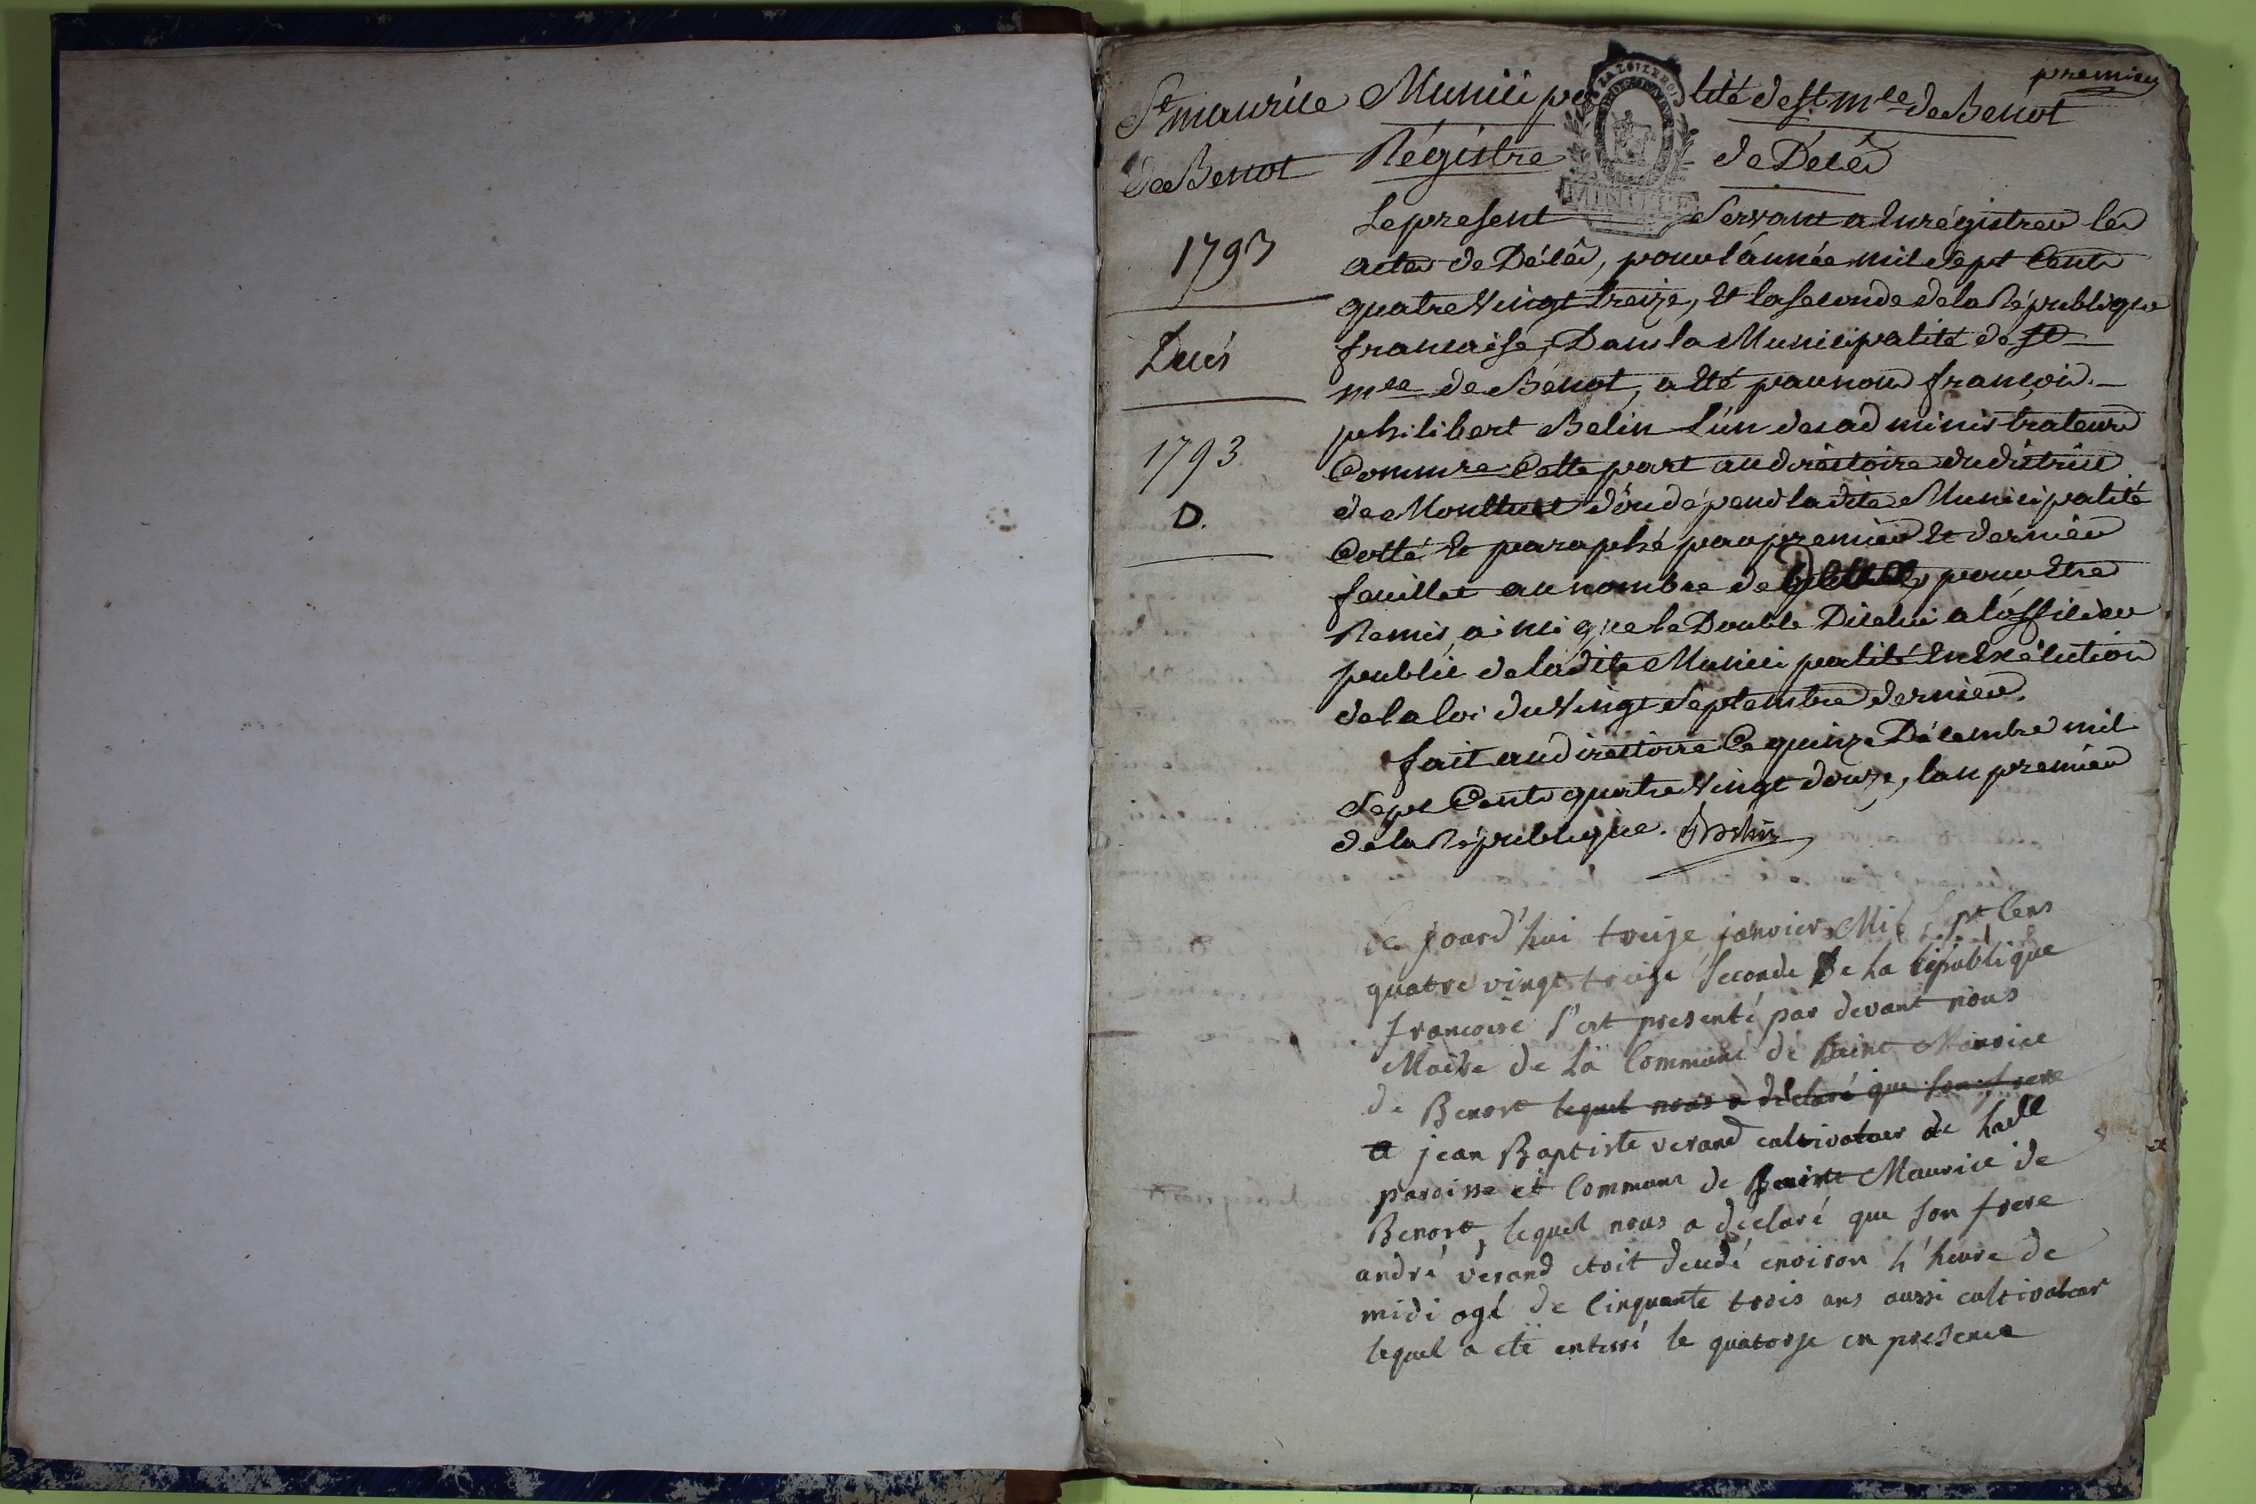 premier
St maurice
de Benot
1793
Decès
1793
D.
Municipalité de st mce de Benot
Régistre de Décès
LA LOI LE ROI
MINUTE
Le present Servant a Enrégistrer les
actes de Décès, pour l'année mil Sept Cents
quatre Vingt treize, Et la seconde de la République
francaise, Dans la Municipalité de st
mce de Bénot, a Eté par nous françois
philibert Belin l'un des administrateurs
Commre Cette part au directoire du district
de Montluel d'ou dépend la dite Municipalité
Cotté Et paraphé par premier Et dernier
feuillet au nombre de pour Etre
Remis, ainsi que le Double Dicelui a lofficier
public de la dite Municipalité En Exécution
de la loi du Vingt Septembre dernier.
fait au directoire Ce quinze Décembre mil
Sept Cents quatre Vingt douze, lan premier
de la République. Belin
Ce jourd'hui treize janvier Mil Sept Cens
quatre vingt treize Seconde de La république
francoise s'est presenté par devant nous
Maire de La Commune de Saint Maurice
de Benost lequel nous a déclaré que son frere
a jean Baptiste verand cultivateur de
paroisse et Commune de Saint Maurice de
Benost, lequel nous a déclaré que son frere
andré verand etoit decedé environ h'heure de
midi agé de Cinquante trois ans aussi cultivateur
lequel a eté enterré le quatorze en presence